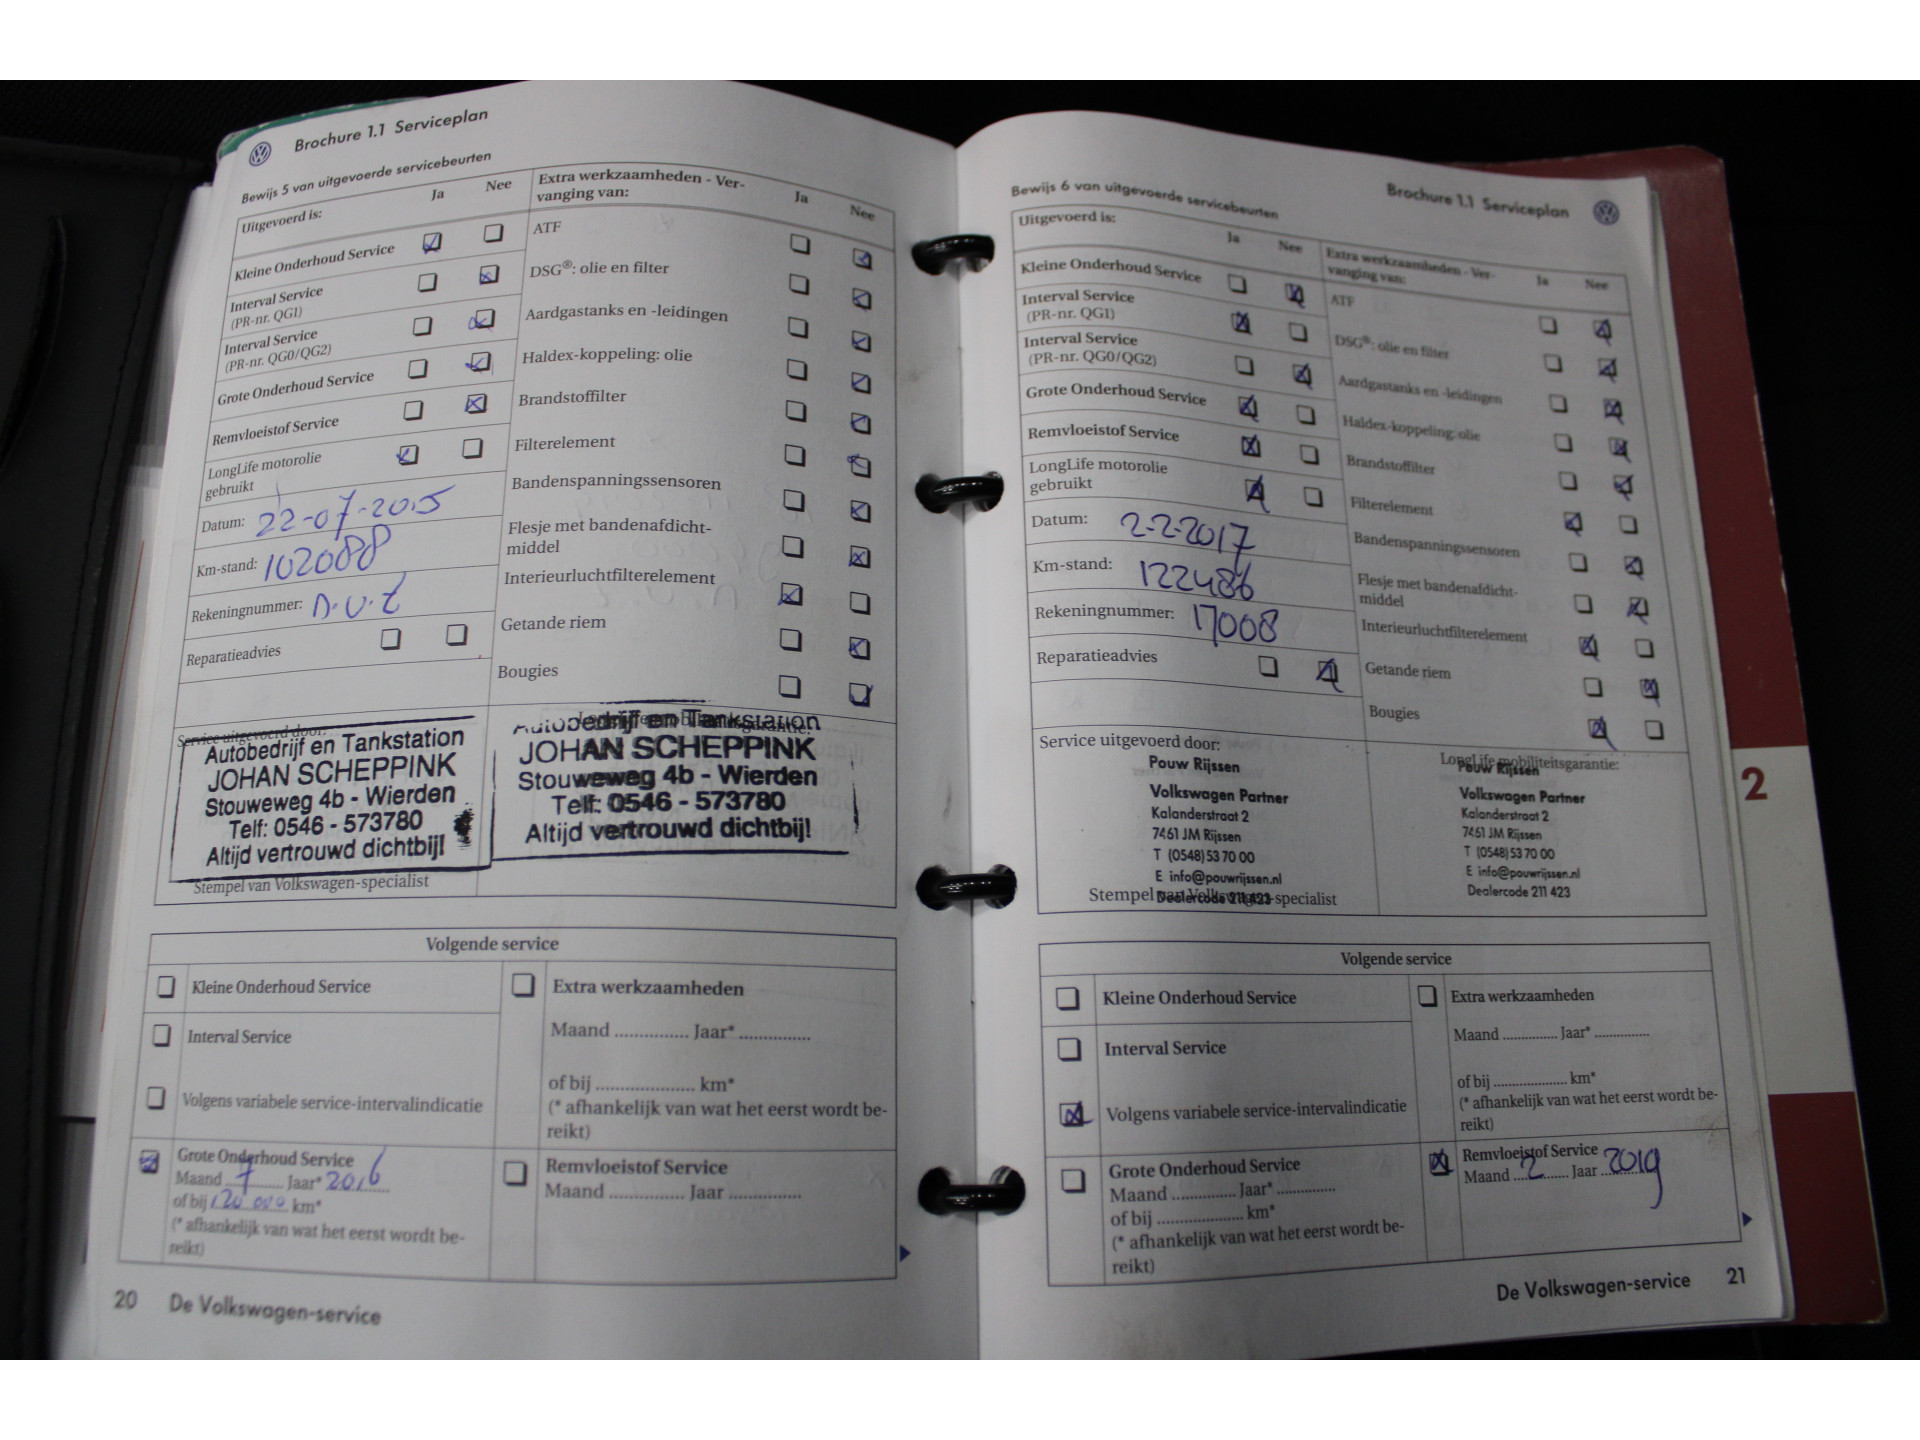 Brochure 1.1 Serviceplan
Bewijs 5 van uitgevoerde servicebeurten
Uitgevoerd is:
Ja
Nee
Kleine Onderhoud Service
Interval Service
(PR-nr. QG1)
Interval Service
(PR-nr. QG0/QG2)
Grote Onderhoud Service
Remvloeistof Service
LongLife motorolie
gebruikt
Datum: 22-07-2015
Km-stand: 102088
Rekeningnummer: D.U.Z
Reparatieadvies
Extra werkzaamheden - Ver-
vanging van:
Ja
Nee
ATF
DSG®: olie en filter
Aardgastanks en -leidingen
Haldex-koppeling: olie
Brandstoffilter
Filterelement
Bandenspanningssensoren
Flesje met bandenafdicht-
middel
Interieurluchtfilterelement
Getande riem
Bougies
Service uitgevoerd door:
Autobedrijf en Tankstation
JOHAN SCHEPPINK
Stouweweg 4b - Wierden
Telf: 0546 - 573780
Altijd vertrouwd dichtbij!
Stempel van Volkswagen-specialist
Autobedrijf en Tankstation
JOHAN SCHEPPINK
Stouweweg 4b - Wierden
Telf: 0546 - 573780
Altijd vertrouwd dichtbij!
Volgende service
Kleine Onderhoud Service
Interval Service
Volgens variabele service-intervalindicatie
Grote Onderhoud Service
Maand 7 Jaar* 2016
of bij 120 000 km*
(* afhankelijk van wat het eerst wordt be-
reikt)
Extra werkzaamheden
Maand ............... Jaar* ...............
of bij ..................... km*
(* afhankelijk van wat het eerst wordt be-
reikt)
Remvloeistof Service
Maand ............... Jaar ...............
20 De Volkswagen-service
Brochure 1.1 Serviceplan
Bewijs 6 van uitgevoerde servicebeurten
Uitgevoerd is:
Ja
Nee
Kleine Onderhoud Service
Interval Service
(PR-nr. QG1)
Interval Service
(PR-nr. QG0/QG2)
Grote Onderhoud Service
Remvloeistof Service
LongLife motorolie
gebruikt
Datum: 2-2-2017
Km-stand: 122486
Rekeningnummer: 17008
Reparatieadvies
Extra werkzaamheden - Ver-
vanging van:
Ja
Nee
ATF
DSG®: olie en filter
Aardgastanks en -leidingen
Haldex-koppeling: olie
Brandstoffilter
Filterelement
Bandenspanningssensoren
Flesje met bandenafdicht-
middel
Interieurluchtfilterelement
Getande riem
Bougies
Service uitgevoerd door:
Pouw Rijssen
Volkswagen Partner
Kalanderstraat 2
7461 JM Rijssen
T (0548) 53 70 00
E info@pouwrijssen.nl
Dealercode 211 423
Stempel van Volkswagen-specialist
LongLife mobiliteitsgarantie:
Pouw Rijssen
Volkswagen Partner
Kalanderstraat 2
7461 JM Rijssen
T (0548) 53 70 00
E info@pouwrijssen.nl
Dealercode 211 423
2
Volgende service
Kleine Onderhoud Service
Interval Service
Volgens variabele service-intervalindicatie
Grote Onderhoud Service
Maand ............... Jaar* ...............
of bij .................... km*
(* afhankelijk van wat het eerst wordt be-
reikt)
Extra werkzaamheden
Maand ............... Jaar* ...............
of bij .................... km*
(* afhankelijk van wat het eerst wordt be-
reikt)
Remvloeistof Service
Maand 2 Jaar 2019
De Volkswagen-service 21